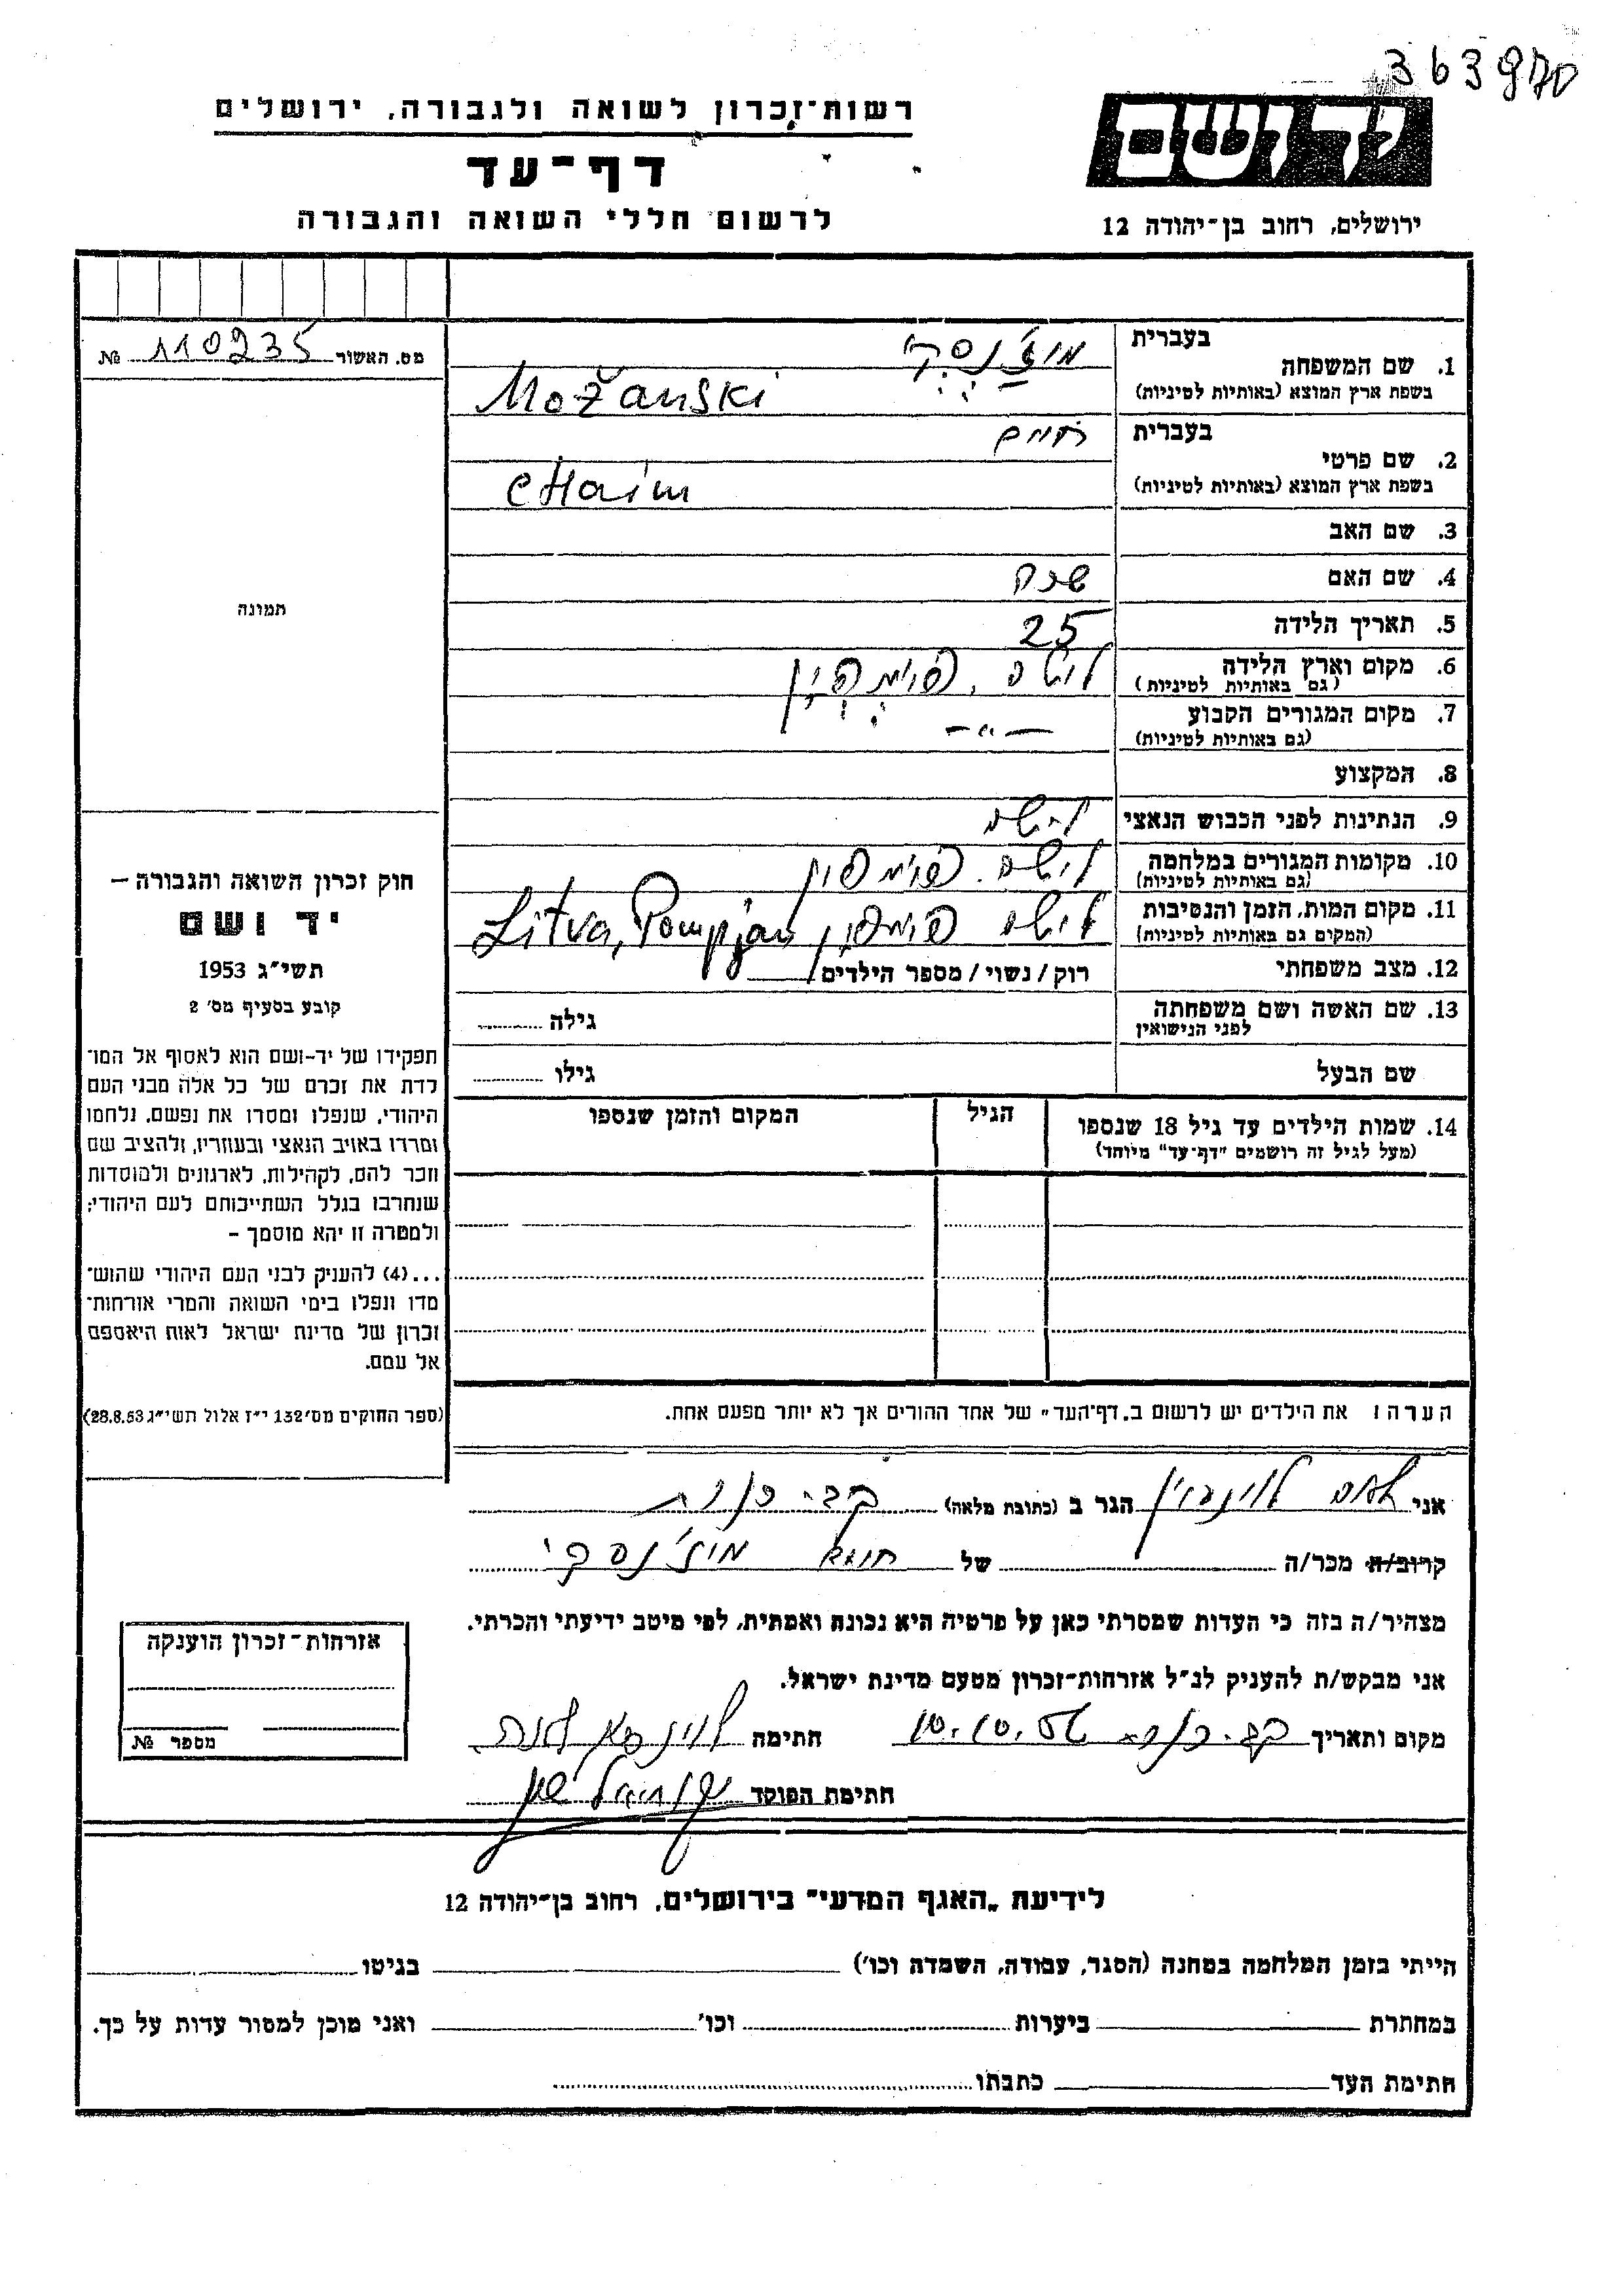 363970
רשות-זכרון לשואה ולגבורה, ירושלים
יד ושם
דף-עד
לרשום חללי השואה והגבורה
ירושלים, רחוב בן-יהודה 12
1. שם המשפחה
בעברית
מוז'נסקי
בשפת ארץ המוצא (באותיות לטיניות)
Možanski
מס. האשור 110235 №
2. שם פרטי
בעברית
חיים
בשפת ארץ המוצא (באותיות לטיניות)
cHaim
3. שם האב
4. שם האם
5. תאריך הלידה 25
6. מקום וארץ הלידה ליטא,
(גם באותיות לטיניות)
7. מקום המגורים הקבוע -"-
(גם באותיות לטיניות)
8. המקצוע
9. הנתינות לפני הכבוש הנאצי ליטא
10. מקומות המגורים במלחמה ליטא.
(גם באותיות לטיניות)
11. מקום המות, הזמן והנסיבות ליטא Litva, Pompjan
(המקום גם באותיות לטיניות)
12. מצב משפחתי רוק/נשוי/מספר הילדים
13. שם האשה ושם משפחתה גילה
לפני הנישואין
שם הבעל גילו
14. שמות הילדים עד גיל 18 שנספו הגיל המקום והזמן שנספו
(מעל לגיל זה רושמים "דף-עד" מיוחד)
תמונה
חוק זכרון השואה והגבורה –
יד ושם
תשי"ג 1953
קובע בסעיף מס' 2
תפקידו של יד-ושם הוא לאסוף אל המו־
לדת את זכרם של כל אלה מבני העם
היהודי, שנפלו ומסרו את נפשם, נלחמו
ומרדו באויב הנאצי ובעוזריו, ולהציב שם
וזכר להם, לקהילות, לארגונים ולמוסדות
שנחרבו בגלל השתייכותם לעם היהודי;
ולמטרה זו יהא מוסמך –
...(4) להעניק לבני העם היהודי שהוש־
מדו ונפלו בימי השואה והמרי אזרחות־
זכרון של מדינת ישראל לאות היאספם
אל עמם.
(ספר החוקים מס' 132 י"ז אלול תשי"ג 28.8.53)
הערה: את הילדים יש לרשום ב„דף-העד" של אחד ההורים אך לא יותר מפעם אחת.
אני הגר ב (כתובת מלאה)
קרוב/ה מכר/ה של מוז'נסקי
מצהיר/ה בזה כי העדות שמסרתי כאן על פרטיה היא נכונה ואמתית, לפי מיטב ידיעתי והכרתי.
אני מבקש/ת להעניק לנ"ל אזרחות-זכרון מטעם מדינת ישראל.
מקום ותאריך 10.10.56 חתימה
חתימת הפוקד
אזרחות-זכרון הוענקה
מספר №
לידיעת „האגף המדעי" בירושלים, רחוב בן-יהודה 12
הייתי בזמן המלחמה במחנה (הסגר, עבודה, השמדה וכו') בגיטו
במחתרת ביערות וכו' ואני מוכן למסור עדות על כך.
חתימת העד כתבתו